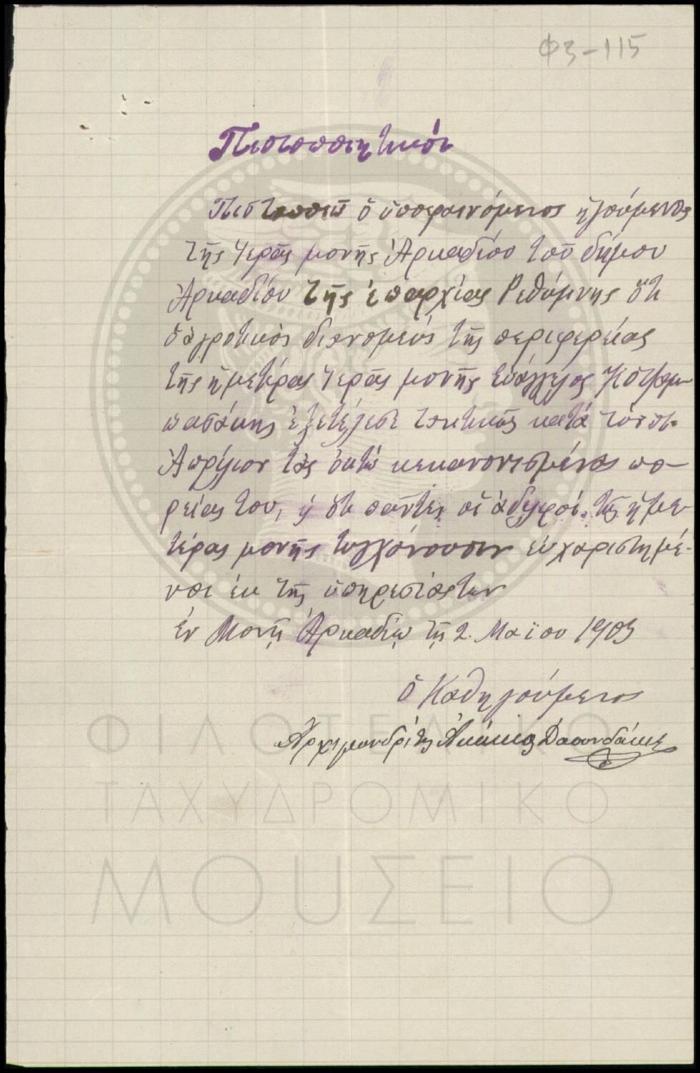 Φ3-115
Πιστοποιητικόν
Πιστοποιῶ ὁ ὑποφαινόμενος ἡγούμενος
τῆς Ἱερᾶς μονῆς Ἀρκαδίου τοῦ δήμου
Ἀρκαδίου τῆς ἐπαρχίας Ρεθύμνης ὅτι
ὁ ἀγροτικὸς διανομεὺς τῆς περιφερείας
τῆς ἡμετέρας Ἱερᾶς μονῆς Εὐάγγελος
ἐξετέλεσε τακτικῶς κατὰ τὸν
Ἀπρίλιον τὰς ὀκτὼ κεκανονισμένας πο-
ρείας του, ὅτι πάντες οἱ ἀδελφοὶ τῆς ἡμε-
τέρας μονῆς τυγχάνουσιν εὐχαριστημέ-
νοι ἐκ τῆς ὑπηρεσίας του
Ἐν Μονῇ Ἀρκαδίῳ τῇ 2 Μαΐου 1903
ὁ Καθηγούμενος
Ἀρχιμανδρίτης
ΦΙΛΟΤΕΛΙΚΟ
ΤΑΧΥΔΡΟΜΙΚΟ
ΜΟΥΣΕΙΟ